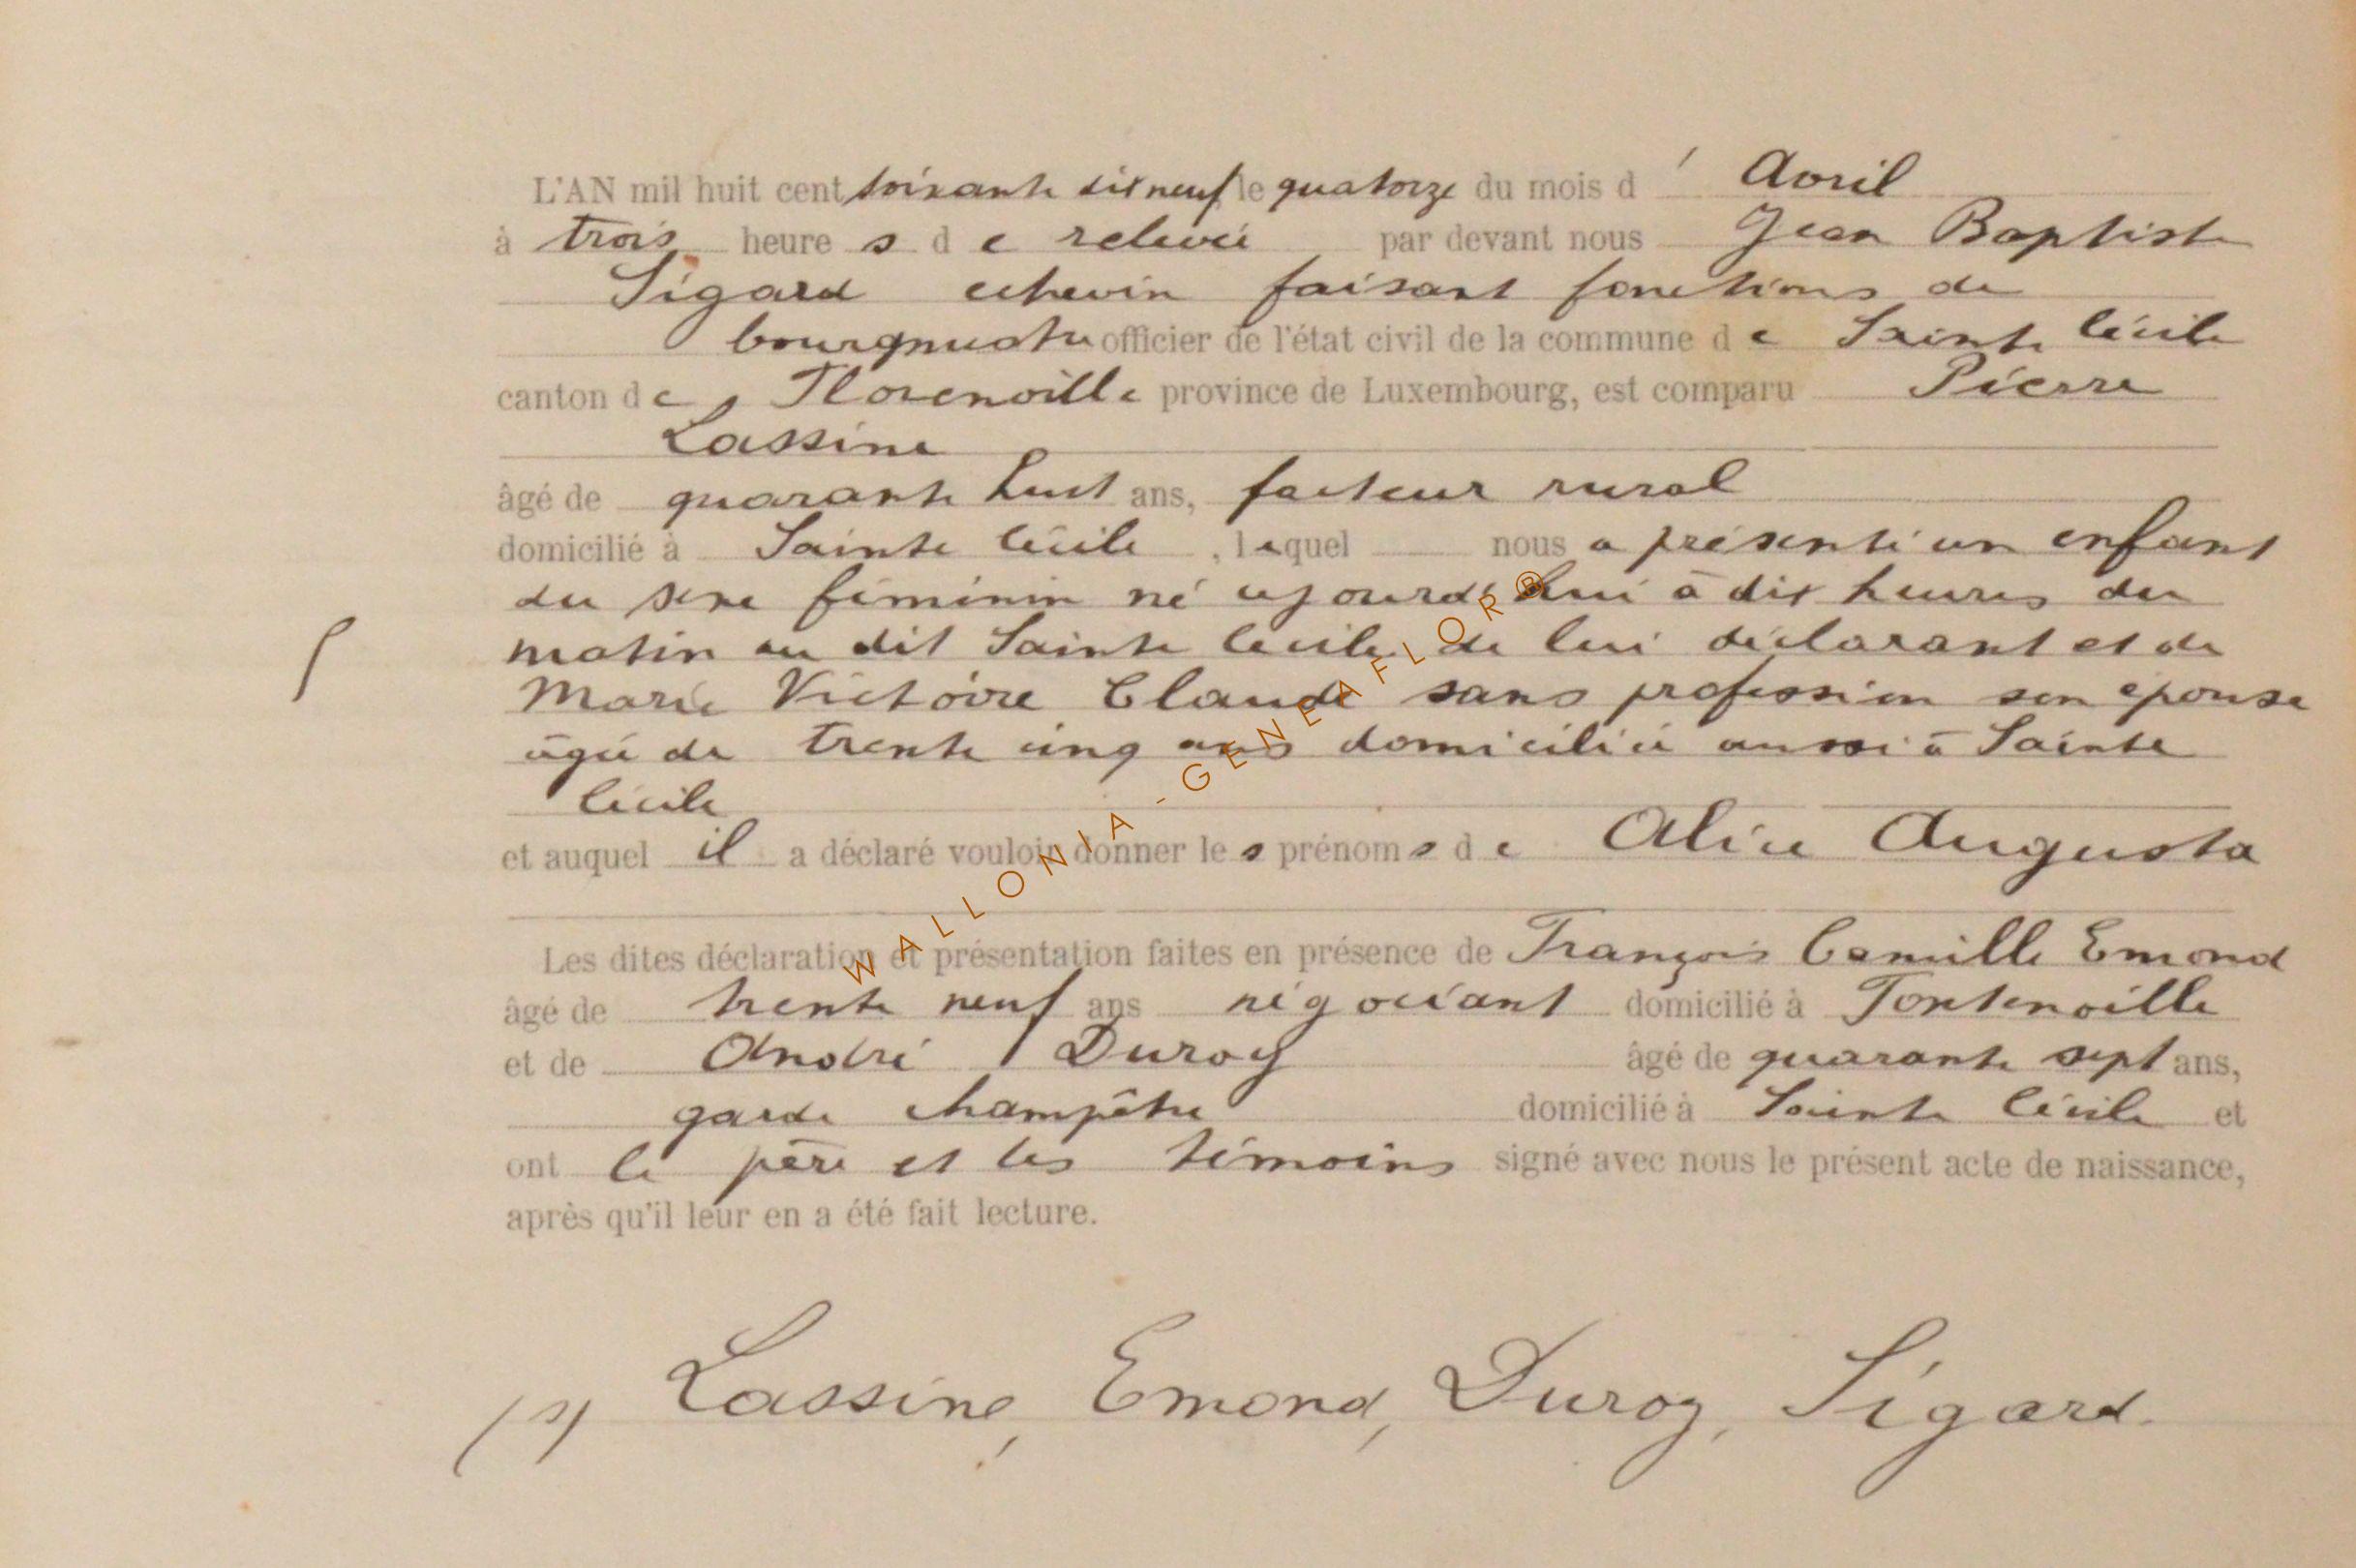 L'AN mil huit cent soixante dix neuf le quatorze du mois d' Avril
à trois heures de relevée par devant nous Jean Baptiste
Sigard echevin faisant fonctions de
bourgmestre officier de l'état civil de la commune de Sainte Cécile
canton de Florenville province de Luxembourg, est comparu Pierre
Lassine
âgé de quarante huit ans, facteur rural
domicilié à Sainte Cécile, lequel nous a présenté un enfant
du sexe féminin né aujourd'hui à dix heures du
matin au dit Sainte Cécile de lui déclarant et de
Marie Victoire Claude sans profession son epouse
âgée de trente cinq ans domiciliée aussi à Sainte
Cécile
et auquel il a déclaré vouloir donner les prénoms de Alice Augusta
Les dites déclaration et présentation faites en présence de François Camille Emond
âgé de trente neuf ans négociant domicilié à Fontenoille
et de André Duroy âgé de quarante sept ans,
garde champêtre domicilié à Sainte Cécile et
ont le père et les témoins signé avec nous le présent acte de naissance,
après qu'il leur en a été fait lecture.
(s) Lassine, Emond, Duroy, Sigard.
WALLONIA - GENEAFLOR®